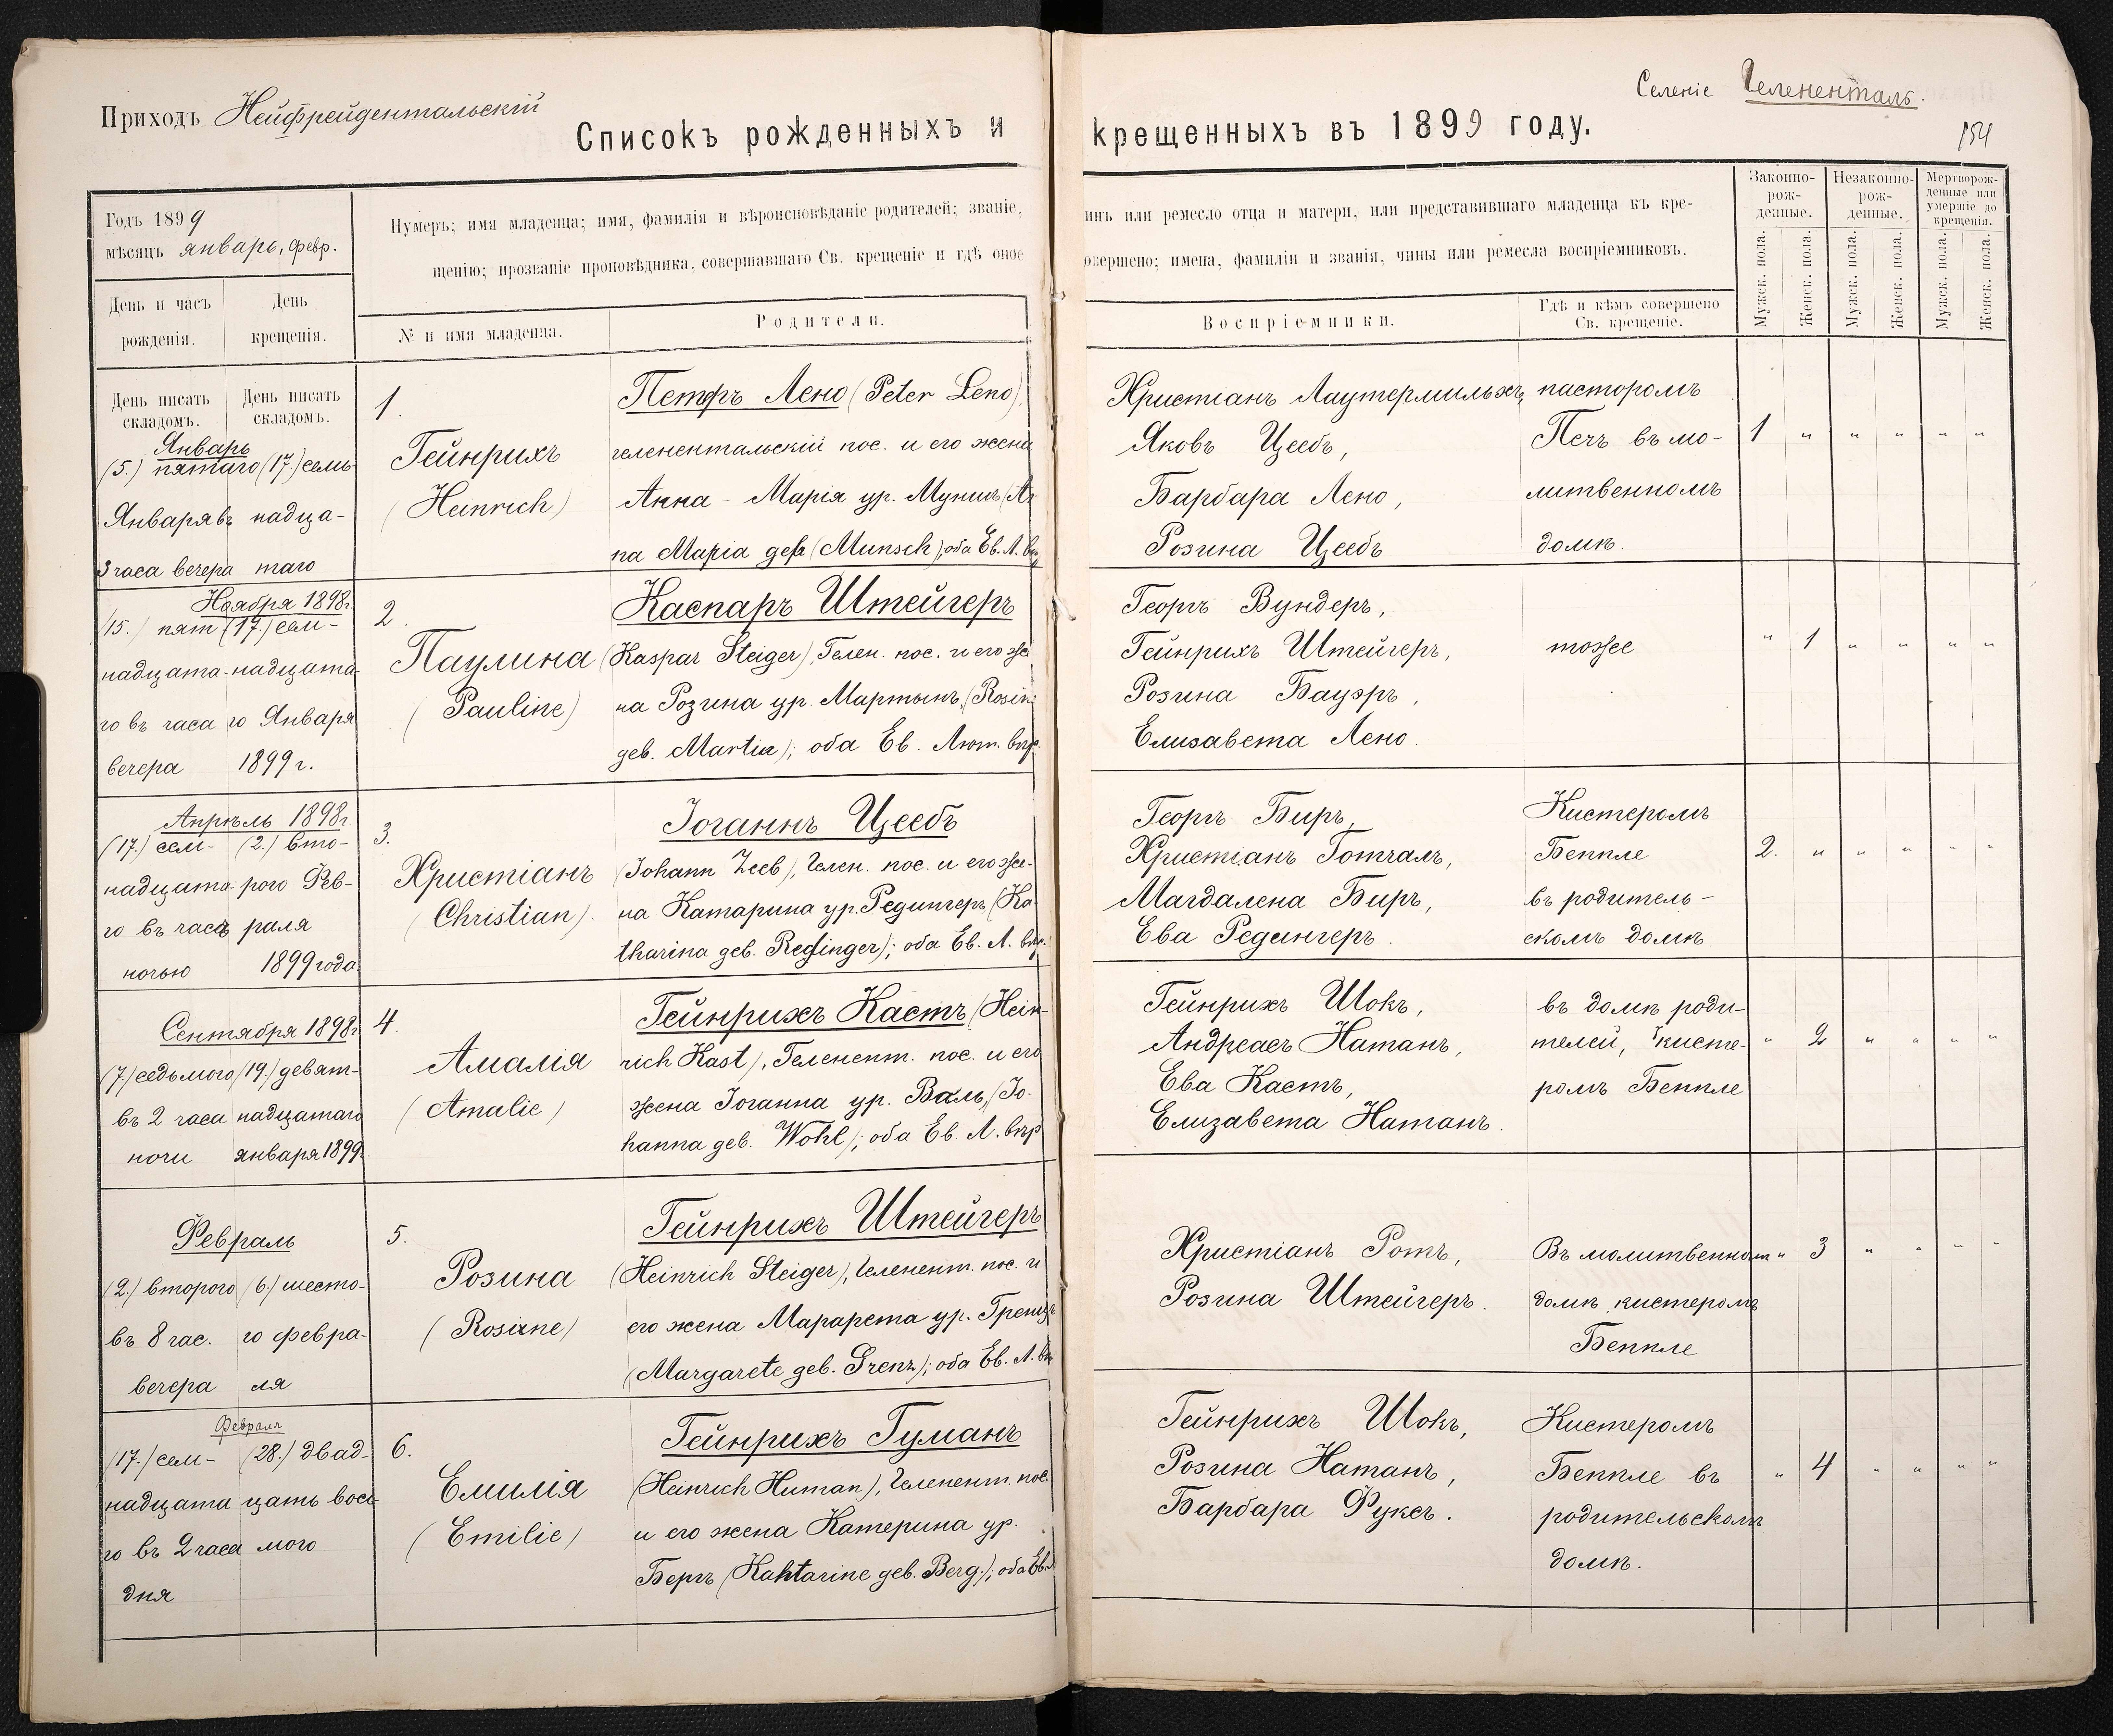 Приходъ Нейфрейдентальскій
Селеніе Гелененталь.
Списокъ рожденныхъ и крещенныхъ въ 1899 году.
154
Годъ 1899
мѣсяцъ январь, февр.
Нумеръ; имя младенца; имя, фамилія и вѣроисповѣданіе родителей; званіе,
щенію; прозваніе проповѣдника, совершавшаго Св. крещеніе и гдѣ оное
инъ или ремесло отца и матери, или представившаго младенца къ кре-
овершено; имена, фамиліи и званія, чины или ремесла воспріемниковъ.
Законно-
рож-
денные.
Незаконно-
рож-
денные.
Мертворож-
денные или
умершіе до
крещенія.
Мужск. пола.
Женск. пола.
Мужск. пола.
Женск. пола.
Мужск. пола.
Женск. пола.
День и часъ
рожденія.
День
крещенія.
№ и имя младенца.
Родители.
Воспріемники.
Гдѣ и кѣмъ совершено
Св. крещеніе.
День писать
складомъ.
День писать
складомъ.
Январь
(5.) пятаго
Января въ
3 часа вечера
(17.) семь
надца-
таго
1.
Гейнрихъ
(Heinrich)
Петръ Лено (Peter Leno),
гелентальскій пос. и его жена
Анна-Марія ур. Муншъ (An
na Maria geb. (Munsch); оба Ев. Л. вѣр
Христіанъ Лаутермильхъ,
Яковъ Цеебъ,
Барбара Лено,
Розина Цеебъ
пасторомъ
Печъ въ мо-
литвенномъ
домѣ.
1 " " " " "
Ноября 1898г.
(15.) пят-
надцата-
го въ часа
вечера
(17.) сем-
надцата-
го Января
1899 г.
2.
Паулина
(Pauline)
Каспаръ Штейгеръ
(Kaspar Steiger), Гелен. пос. и его же
на Розина ур. Мартынъ, (Rosin
geb. Martin); оба Ев. Лют. вѣр.
Георгъ Вундеръ,
Гейнрихъ Штейгеръ,
Розина Бауэръ,
Елизавета Лено.
тоже
" 1 " " " "
Апрѣль 1898г.
(17.) сем-
надцата-
го въ часъ
ночью
(2.) вто-
рого Фев-
раля
1899 года
3.
Христіанъ
(Christian).
Іоганнъ Цеебъ
(Johann Zeeb), Гелен. пос. и его же-
на Катарина ур. Редингеръ (Ka-
tharina geb. Redinger); оба Ев. Л. вѣр.
Георгъ Биръ,
Христіанъ Готчалъ,
Магдалена Биръ,
Ева Редингеръ.
Кистеромъ
Беппле
въ родитель-
скомъ домѣ
2. " " " " "
Сентября 1898г.
(7.) седьмого
въ 2 часа
ночи
(19.) девят-
надцатаго
января 1899.
4.
Амалія
(Amalie)
Гейнрихъ Кастъ (Hein-
rich Kast), Геленент. пос. и его
жена Іоганна ур. Валь, (Jo-
hanna geb. Wohl); оба Ев. Л. вѣр
Гейнрихъ Шокъ,
Андреасъ Натанъ,
Ева Кастъ,
Елизавета Натанъ.
въ домѣ роди-
телей, кисте-
ромъ Беппле
" 2 " " " "
Февраль
(2.) второго
въ 8 час.
вечера
(6.) шесто-
го февра-
ля
5.
Розина
(Rosine)
Гейнрихъ Штейгеръ
(Heinrich Steiger), Геленент. пос. и
его жена Марарета ур. Гренцъ
(Margarete geb. Grenz); оба Ев. Л. вѣ
Христіанъ Ротъ,
Розина Штейгеръ.
Въ молитвенномъ
домѣ кистеромъ
Беппле
" 3 " " " "
Февраля
(17.) сем-
надцата
го въ 2 часа
дня
(28.) двад-
цать вось-
мого
6.
Емилія
(Emilie)
Гейнрихъ Гуманъ
(Heinrich Human), Геленент. пос.
и его жена Катерина ур.
Бергъ (Kahtarine geb. Berg.); оба Ев.
Гейнрихъ Шокъ,
Розина Натанъ,
Барбара Фуксъ.
Кистеромъ
Беппле въ
родительскомъ
домѣ.
" 4 " " " "